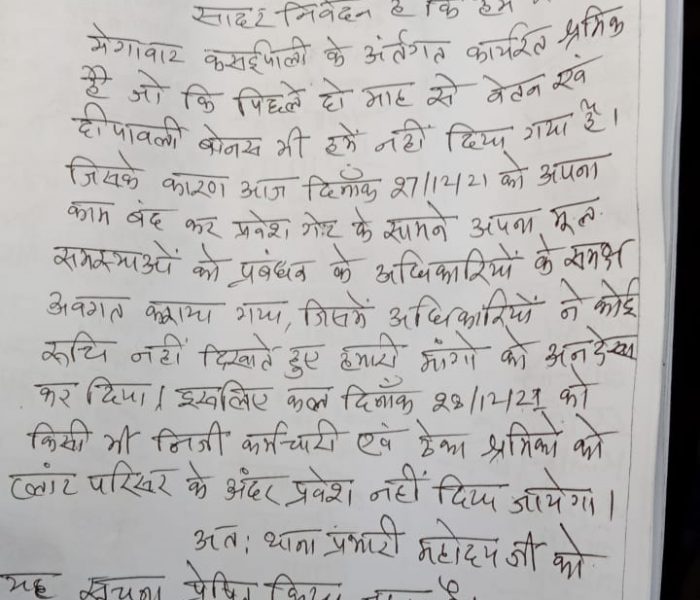 सादर निवेदन है कि हम
मेगावाट कसईपाली के अंर्तगत कार्यरत श्रमिक
है जो कि पिछले दो माह से वेतन एवं
दीपावली बोनस भी हमें नहीं दिया गया है।
जिसके कारण आज दिनाँक 27/12/21 को अपना
काम बंद कर प्रवेश गेट के सामने अपना मूल
समस्याओं को प्रबंधन के अधिकारियों के समक्ष
अवगत कराया गया, जिसमें अधिकारियों ने कोई
रूचि नहीं दिखाते हुए हमारी मांगो को अनदेखा
कर दिया। इसलिए कल दिनाँक 28/12/21 को
किसी भी निजी कर्मचारी एवं ठेका श्रमिकों को
प्लांट परिसर के अंदर प्रवेश नहीं दिया जायेगा।
अतः थाना प्रभारी महोदय जी को
यह सूचना प्रेषित किया